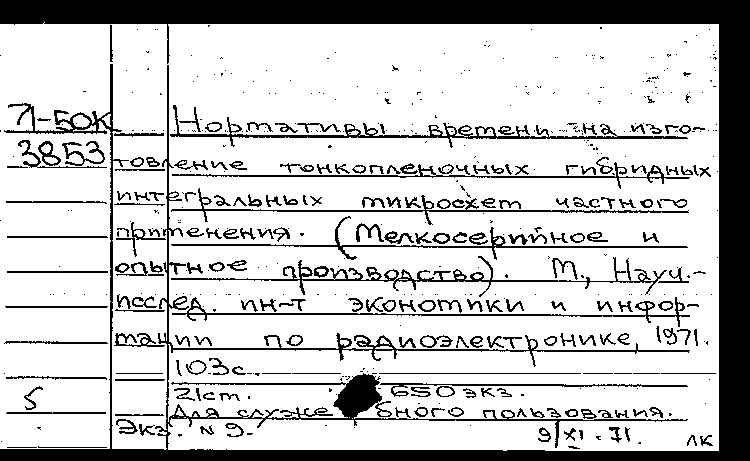 71-50К Нормативы времени на изго-
3853 товление тонкопленочных гибридных
интегральных микросхем частного
применения. (Мелкосерийное и
опытное производство). М., Науч.-
исслед. ин-т экономики и инфор-
мации по радиоэлектронике, 1971.
103с.
21cm. 650 экз.
5 Для служебного пользования.
Экз. N 9. 9/XI-71. ЛК